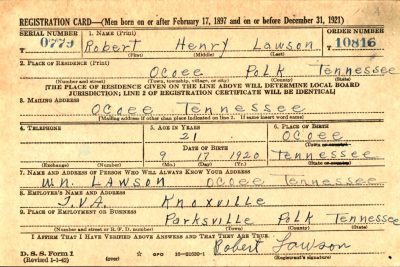 REGISTRATION CARD—(Men born on or after February 17, 1897 and on or before December 31, 1921)
SERIAL NUMBER 1. NAME (Print) ORDER NUMBER
T 0779 Robert Henry Lawson T 10816
(First) (Middle) (Last)
2. PLACE OF RESIDENCE (Print)
Ocoee Polk Tennessee
(Number and street) (Town, township, village, or city) (County) (State)
[THE PLACE OF RESIDENCE GIVEN ON THE LINE ABOVE WILL DETERMINE LOCAL BOARD
JURISDICTION; LINE 2 OF REGISTRATION CERTIFICATE WILL BE IDENTICAL]
3. MAILING ADDRESS
Ocoee Tennessee
[Mailing address if other than place indicated on line 2. If same insert word same]
4. TELEPHONE 5. AGE IN YEARS 6. PLACE OF BIRTH
21 Ocoee
DATE OF BIRTH (Town or county)
9 17 1920 Tennessee
(Exchange) (Number) (Mo.) (Day) (Yr.) (State or country)
7. NAME AND ADDRESS OF PERSON WHO WILL ALWAYS KNOW YOUR ADDRESS
Wm. Lawson Ocoee Tennessee
8. EMPLOYER'S NAME AND ADDRESS
T.V.A. Knoxville
9. PLACE OF EMPLOYMENT OR BUSINESS
Parksville Polk Tennessee
(Number and street or R. F. D. number) (Town) (County) (State)
I AFFIRM THAT I HAVE VERIFIED ABOVE ANSWERS AND THAT THEY ARE TRUE.
Robert Lawson
D. S. S. Form 1
(Revised 1-1-42) (over) GPO 16—21630-1 (Registrant's signature)